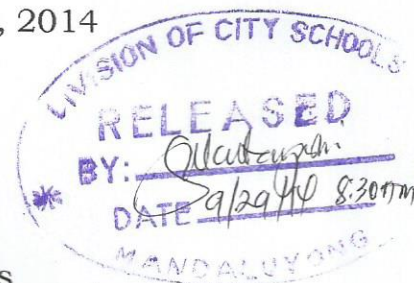 , 2014
DIVISION OF CITY SCHOOLS
RELEASED
BY:
DATE 9/29/14 8:30AM
MANDALUYONG
s